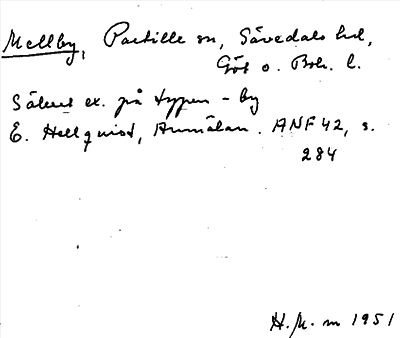 Mellby, Partille sn, Sävedals hd,
Göt o. Boh. l.
Säkert ex. på typen - by
E. Hellquist, Anmälan. ANF 42, s.
284
H.M. m 1951